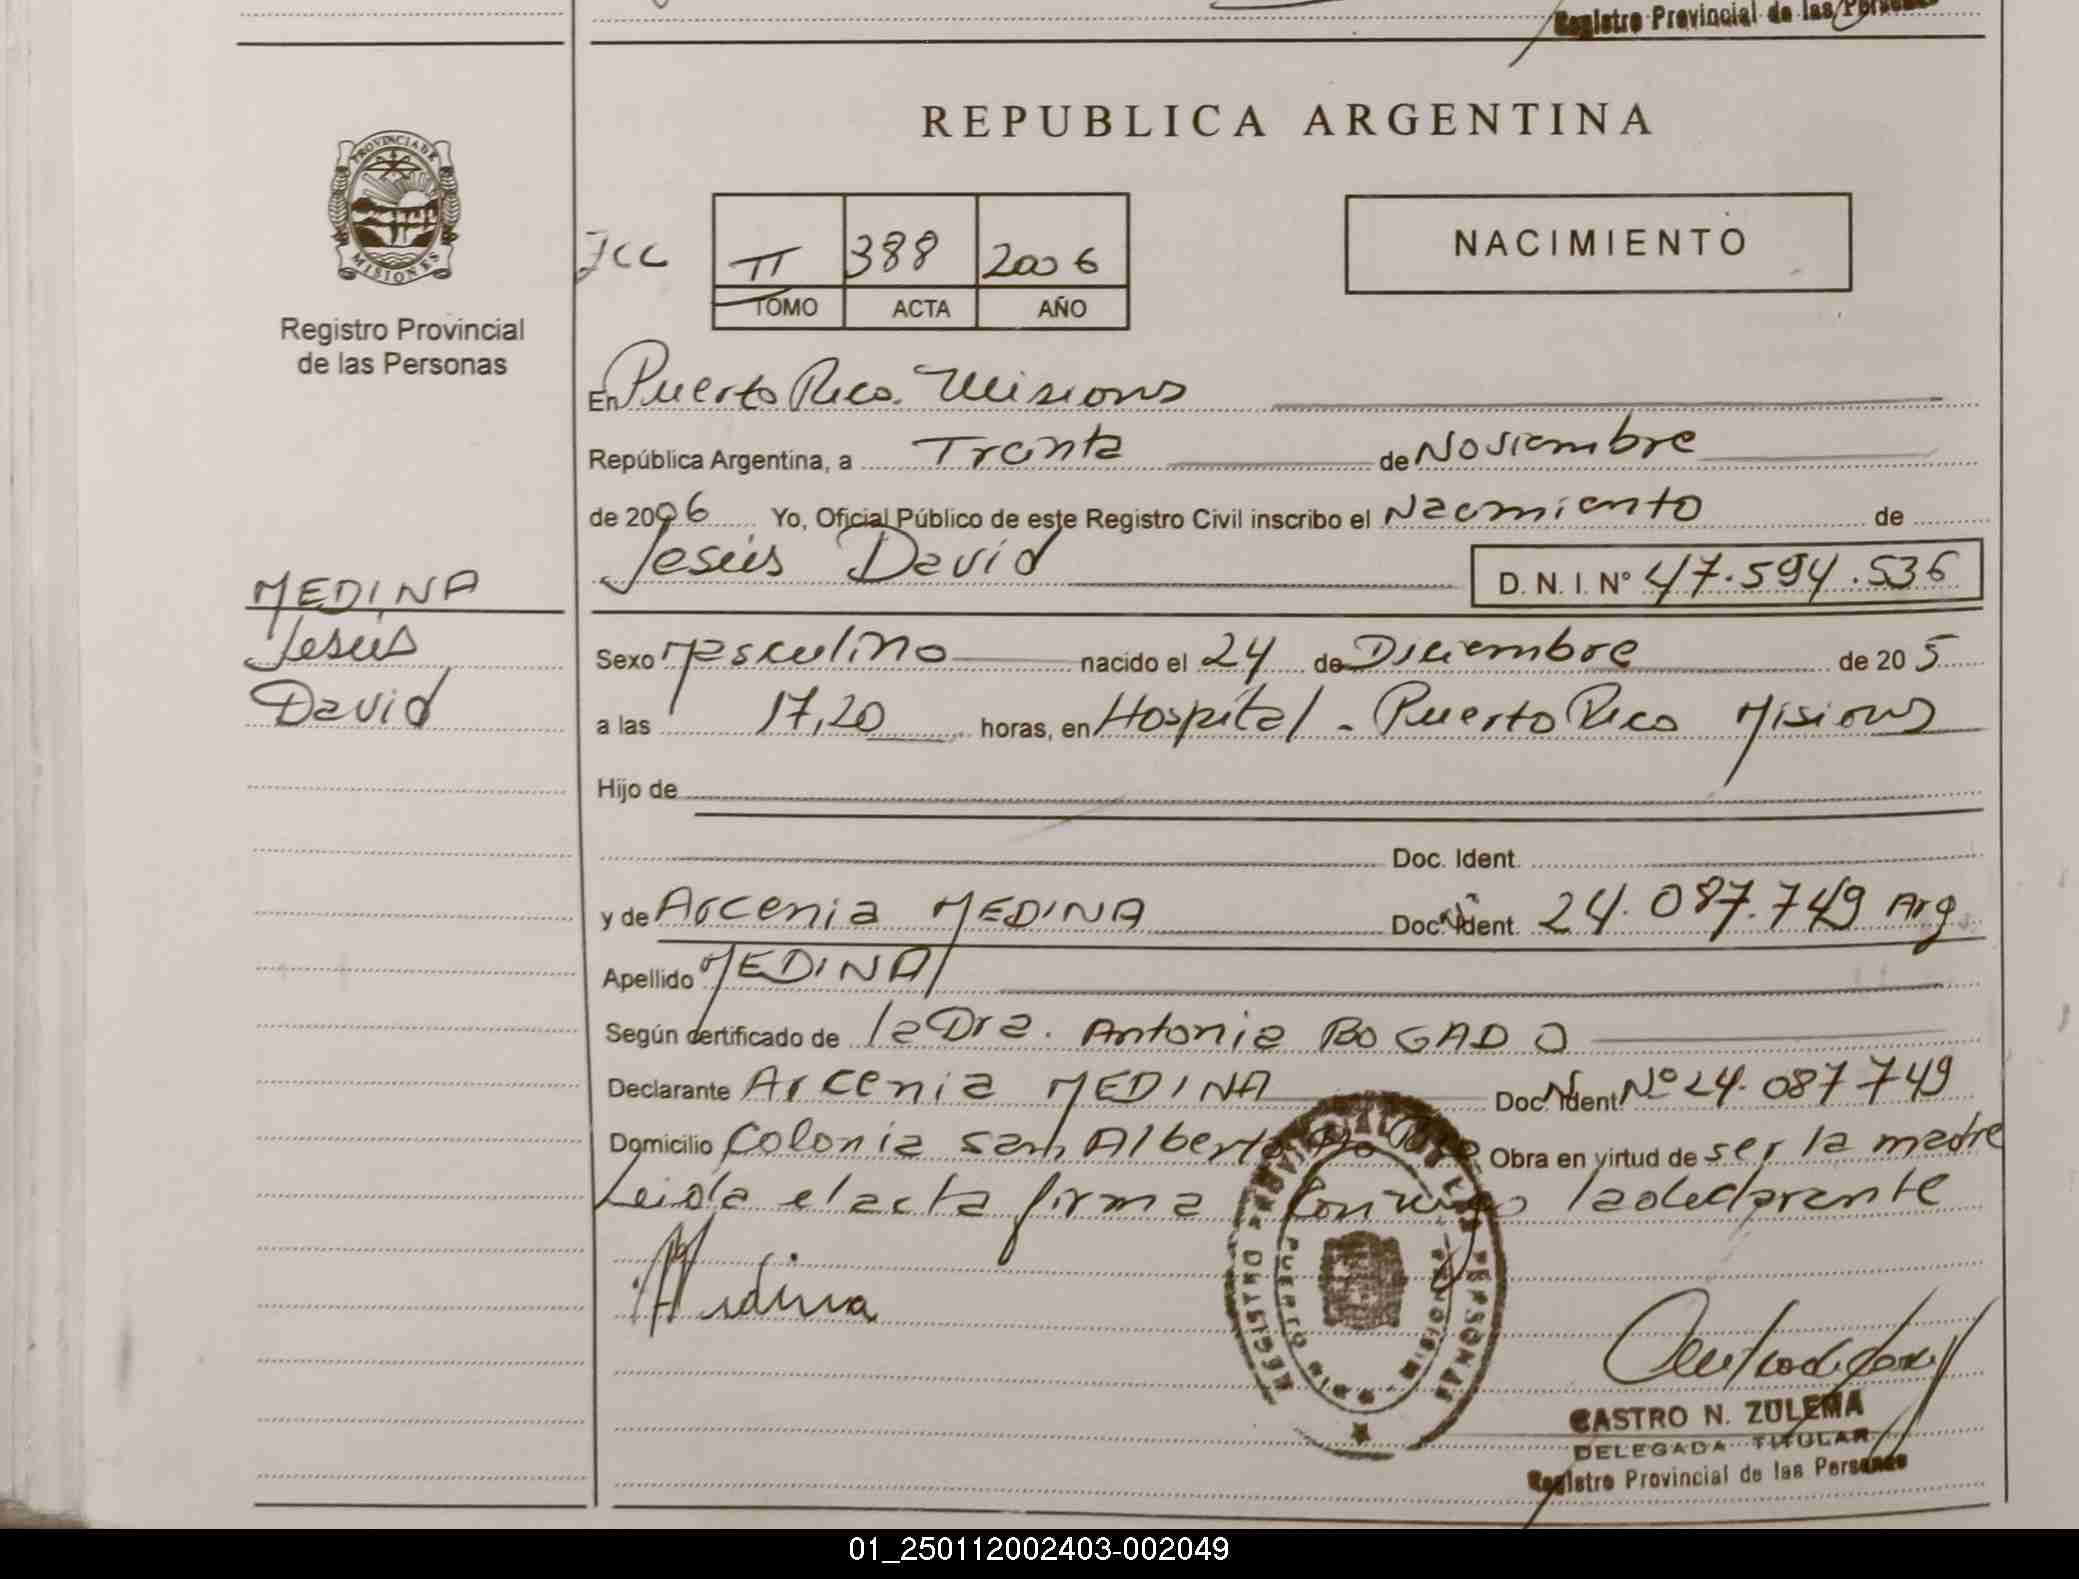 Registro Provincial de las Personas
REPUBLICA ARGENTINA
PROVINCIA DE
MISIONES
Registro Provincial
de las Personas
JCC
II 388 2006
TOMO ACTA AÑO
NACIMIENTO
En Puerto Rico. Misiones
República Argentina, a Treinta de Noviembre
de 2006 Yo, Oficial Público de este Registro Civil inscribo el Nacimiento de
Jesús David D. N. I. N° 47.594.536
MEDINA
Jesús
David
Sexo Masculino nacido el 24 de Diciembre de 20 5
a las 17,20 horas, en Hospital - Puerto Rico Misiones
Hijo de
Doc. Ident.
y de Arcenia MEDINA Doc. Ident. 24.087.749 Arg
Apellido MEDINA
Según certificado de la Dra. Antonia BOGADO
Declarante Arcenia MEDINA Doc. Ident. N° 24.087 749
Domicilio Colonia san Alberto Pto Rico Obra en virtud de ser la madre
Leida el acta firma conmigo la declarante
Medina
REGISTRO PROVINCIAL DE LAS PERSONAS
PUERTO RICO - MISIONES
CASTRO N. ZULEMA
DELEGADA TITULAR
Registro Provincial de las Personas
01_250112002403-002049